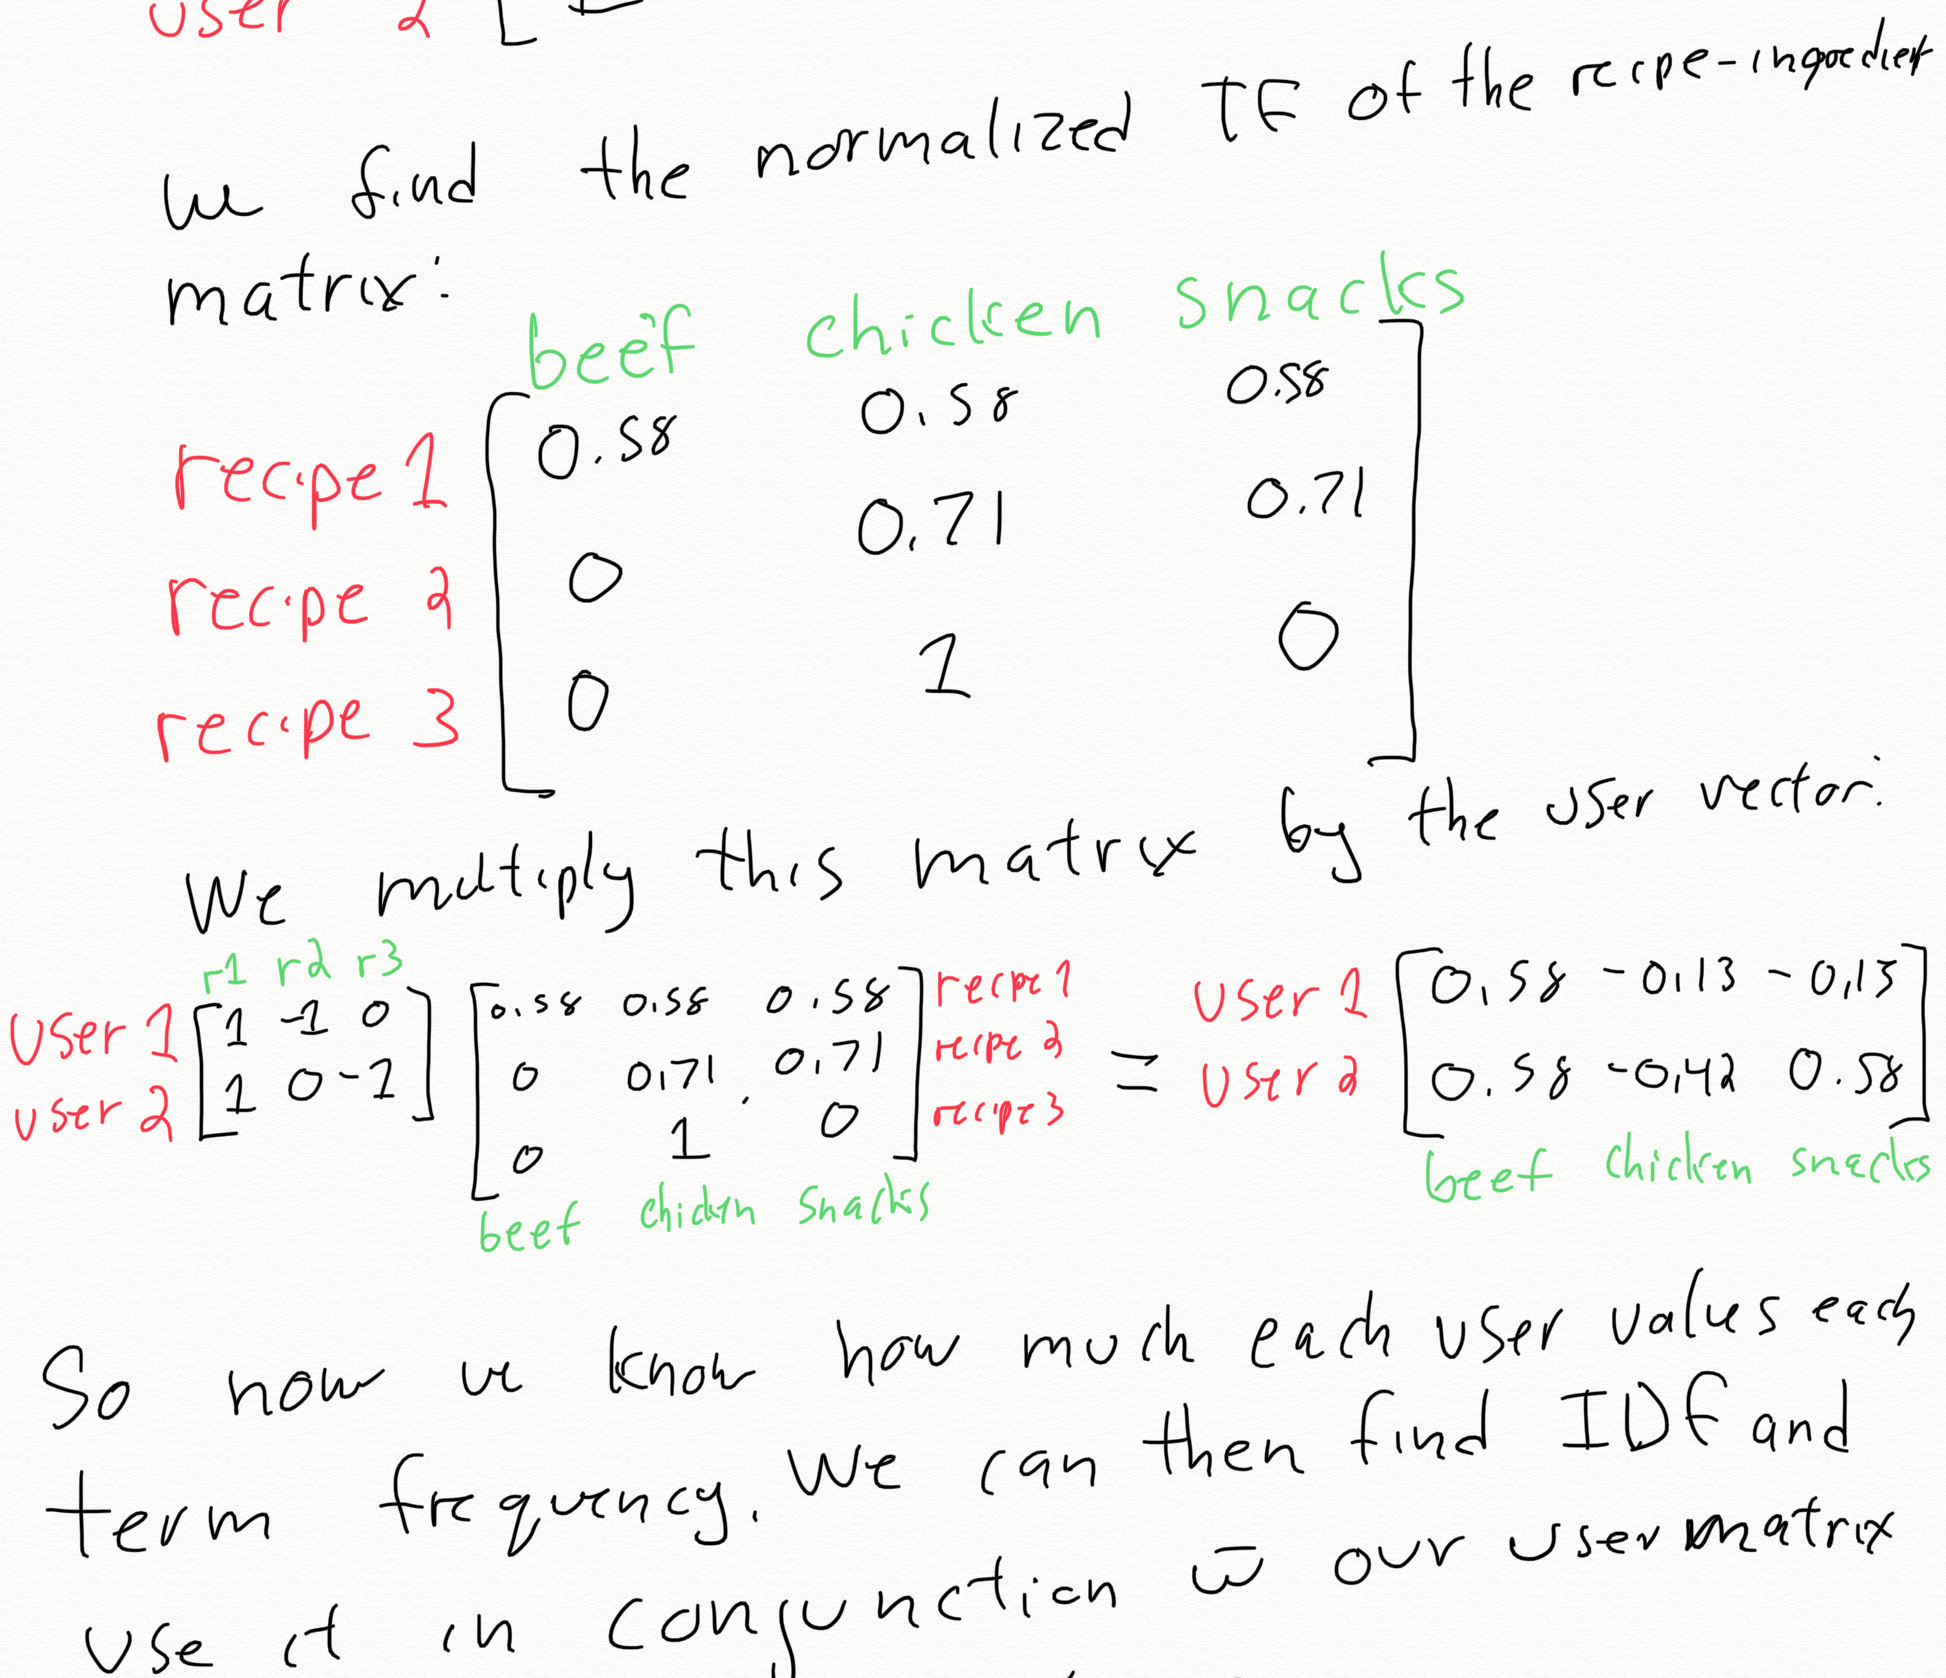 user 2
we find the normalized TF of the recipe-ingredient
matrix:
beef chicken snacks
recipe 1 0.58 0.58 0.58
recipe 2 0 0.71 0.71
recipe 3 0 1 0
We multiply this matrix by the user vector:
r1 r2 r3
user 1 1 -1 0 0.58 0.58 0.58 recipe 1 = user 1 0.58 -0.13 -0.13
user 2 1 0 -1 0 0.71 0.71 recipe 2 user 2 0.58 -0.42 0.58
0 1 0 recipe 3
beef chicken snacks beef chicken snacks
So now we know how much each user values each
term frequency. We can then find IDF and
use it in conjunction w our user matrix